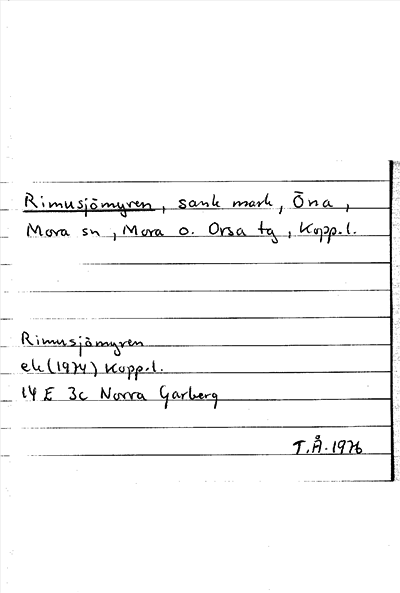 Rimusjömyren, sank mark, Öna,
Mora sn, Mora o. Orsa tg, Kopp.l.
Rimusjömyren
ek (1974) Kopp.l.
14 E 3c Norra Garberg
T.Å. 1976